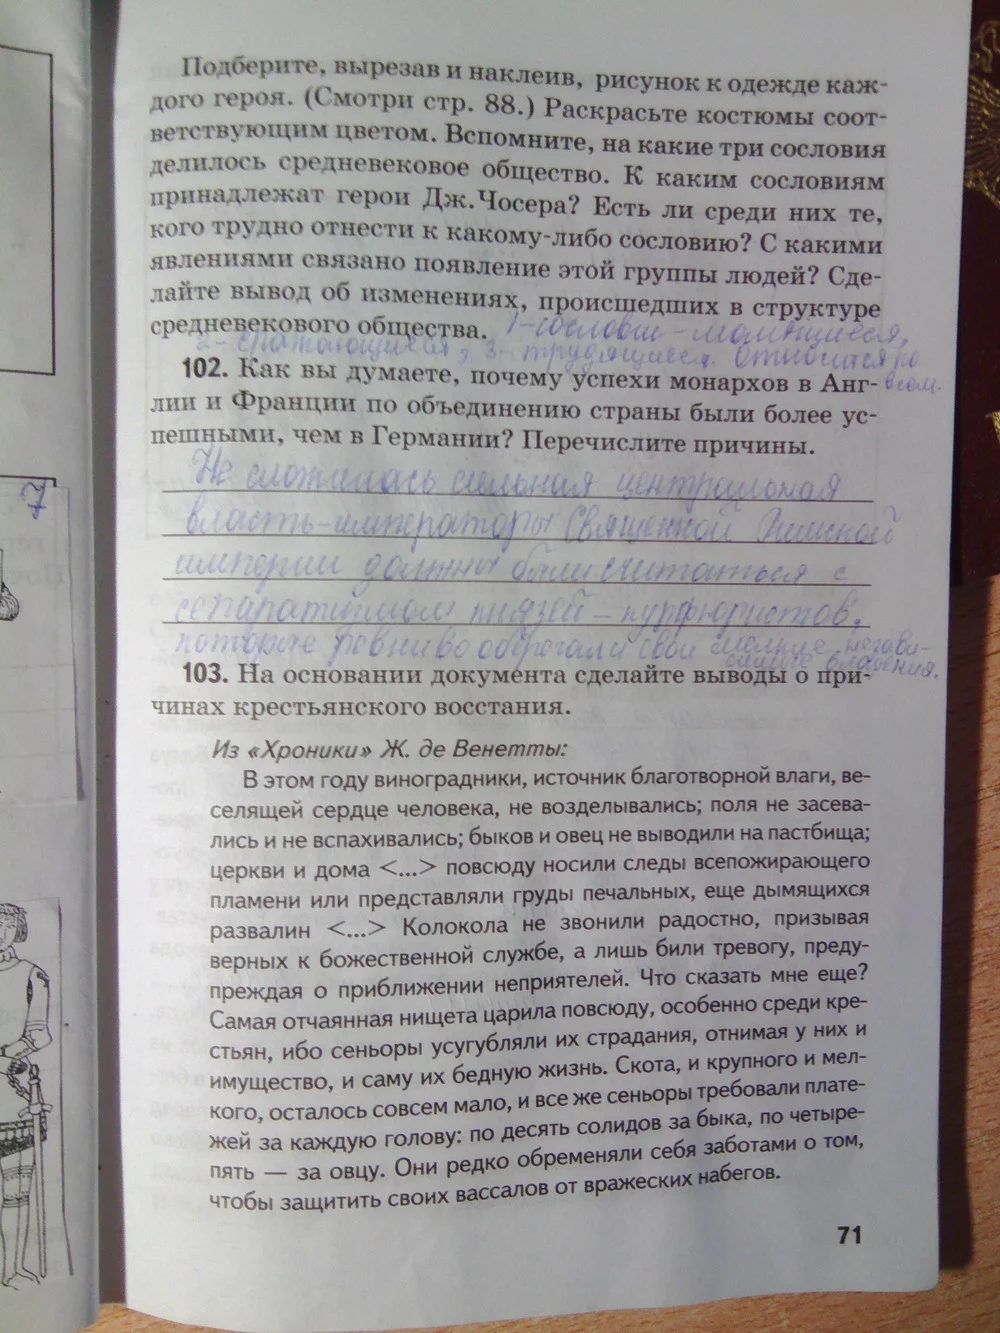 Подберите, вырезав и наклеив, рисунок к одежде каж-
дого героя. (Смотри стр. 88.) Раскрасьте костюмы соот-
ветствующим цветом. Вспомните, на какие три сословия
делилось средневековое общество. К каким сословиям
принадлежат герои Дж.Чосера? Есть ли среди них те,
кого трудно отнести к какому-либо сословию? С какими
явлениями связано появление этой группы людей? Сде-
лайте вывод об изменениях, происшедших в структуре
средневекового общества. 1-сословие - молящиеся,
2- сражающиеся, 3- трудящиеся. Относится ко
всем.
102. Как вы думаете, почему успехи монархов в Анг-
лии и Франции по объединению страны были более ус-
пешными, чем в Германии? Перечислите причины.
Не сложилась сильная центральная
власть-императоры Священной Римской
империи должны были считаться с
сепаратизмом князей - курфюрстов,
которые ревниво оберегали свои мелкие незави-
симые владения.
103. На основании документа сделайте выводы о при-
чинах крестьянского восстания.
Из «Хроники» Ж. де Венетты:
В этом году виноградники, источник благотворной влаги, ве-
селящей сердце человека, не возделывались; поля не засева-
лись и не вспахивались; быков и овец не выводили на пастбища;
церкви и дома <...> повсюду носили следы всепожирающего
пламени или представляли груды печальных, еще дымящихся
развалин <...> Колокола не звонили радостно, призывая
верных к божественной службе, а лишь били тревогу, преду-
преждая о приближении неприятелей. Что сказать мне еще?
Самая отчаянная нищета царила повсюду, особенно среди кре-
стьян, ибо сеньоры усугубляли их страдания, отнимая у них и
имущество, и саму их бедную жизнь. Скота, и крупного и мел-
кого, осталось совсем мало, и все же сеньоры требовали плате-
жей за каждую голову: по десять солидов за быка, по четыре-
пять — за овцу. Они редко обременяли себя заботами о том,
чтобы защитить своих вассалов от вражеских набегов.
71
7